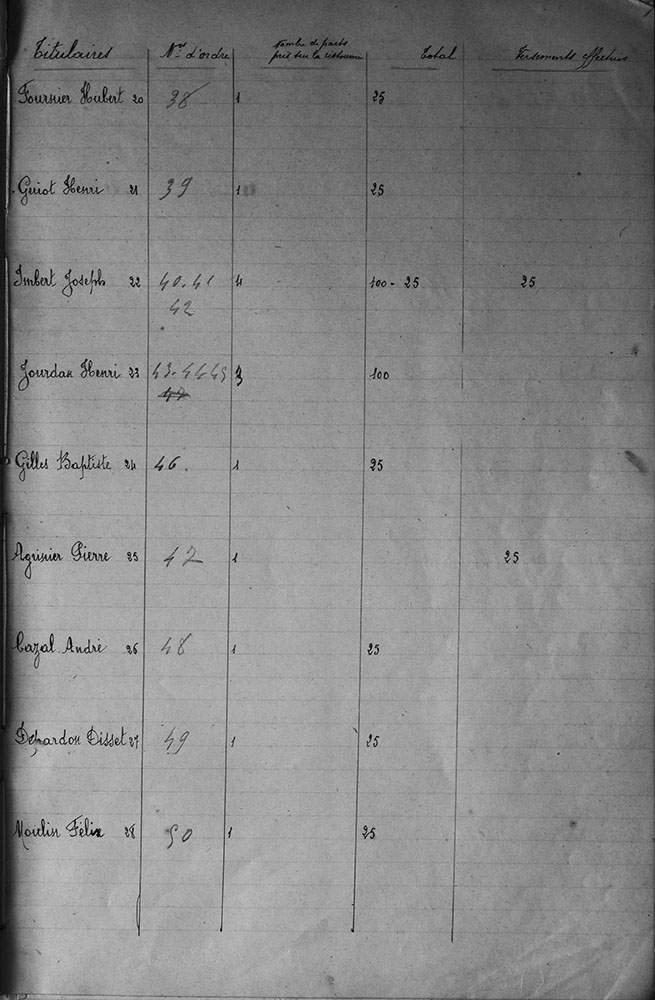 Titulaires Nos d'ordre Nombre de parts Total Versements effectués
pris sur la
Fournier Hubert 20 38 1 25
Guiot Henri 21 39 1 25
Imbert Joseph 22 40.41 4 100 - 25 25
42
Jourdan Henri 23 43.44 45 3 100
47
Gilles Baptiste 24 46. 1 25
Agrinier Pierre 25 47 1 25
Cazal André 26 48 1 25
Depardon Disset 27 49 1 25
Moulin Félix 28 50 1 25